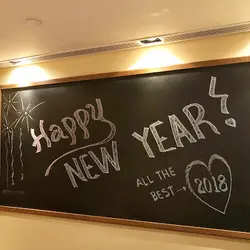 Happy
NEW YEAR!
ALL THE
BEST → 2018